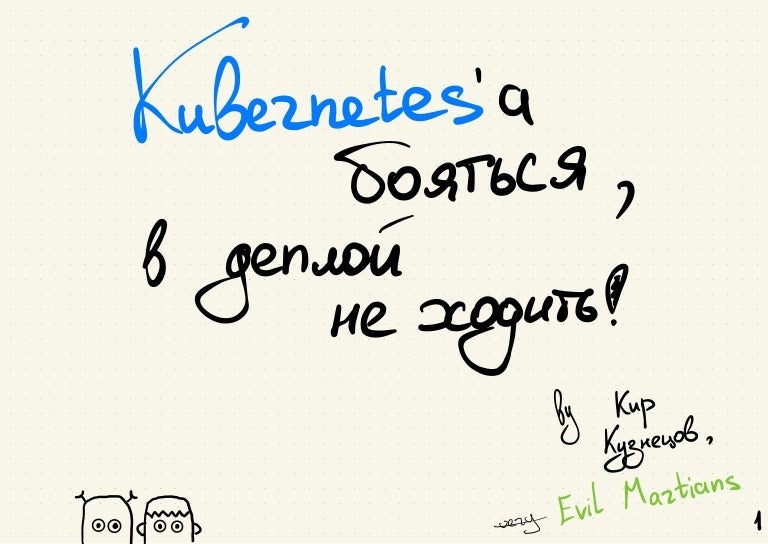 Kubernetes'а
бояться,
в деплой
не ходить!
by Кир
Кузнецов,
very Evil Martians
1